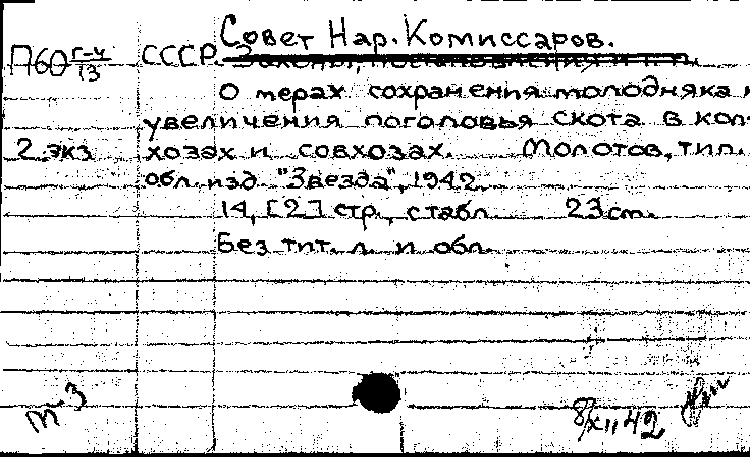 Совет Нар. Комиссаров.
П60 г-4/13 СССР. Законы, постановления и т. п.
О мерах сохранения молодняка и
увеличения поголовья скота в кол-
2 экз. хозах и совхозах. Молотов, тип.
обл. изд. "Звезда", 1942.
14, [2] стр., с табл. 23 см.
Без тит. л. и обл.
т-3
8/XII 42